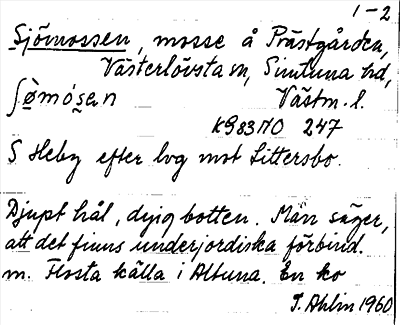 1-2
Sjömossen, mosse å Prästgården,
Västerlövsta sn, Simtuna hd,
ʃø̀mósa̤n Västm. l.
KG83NO 247
S Heby efter lvg mot Littersbo.
Djupt hål, dyig botten. Man säger,
att det finns underjordiska förbind.
m. Flosta källa i Altuna. En ko
T. Ahlin 1960